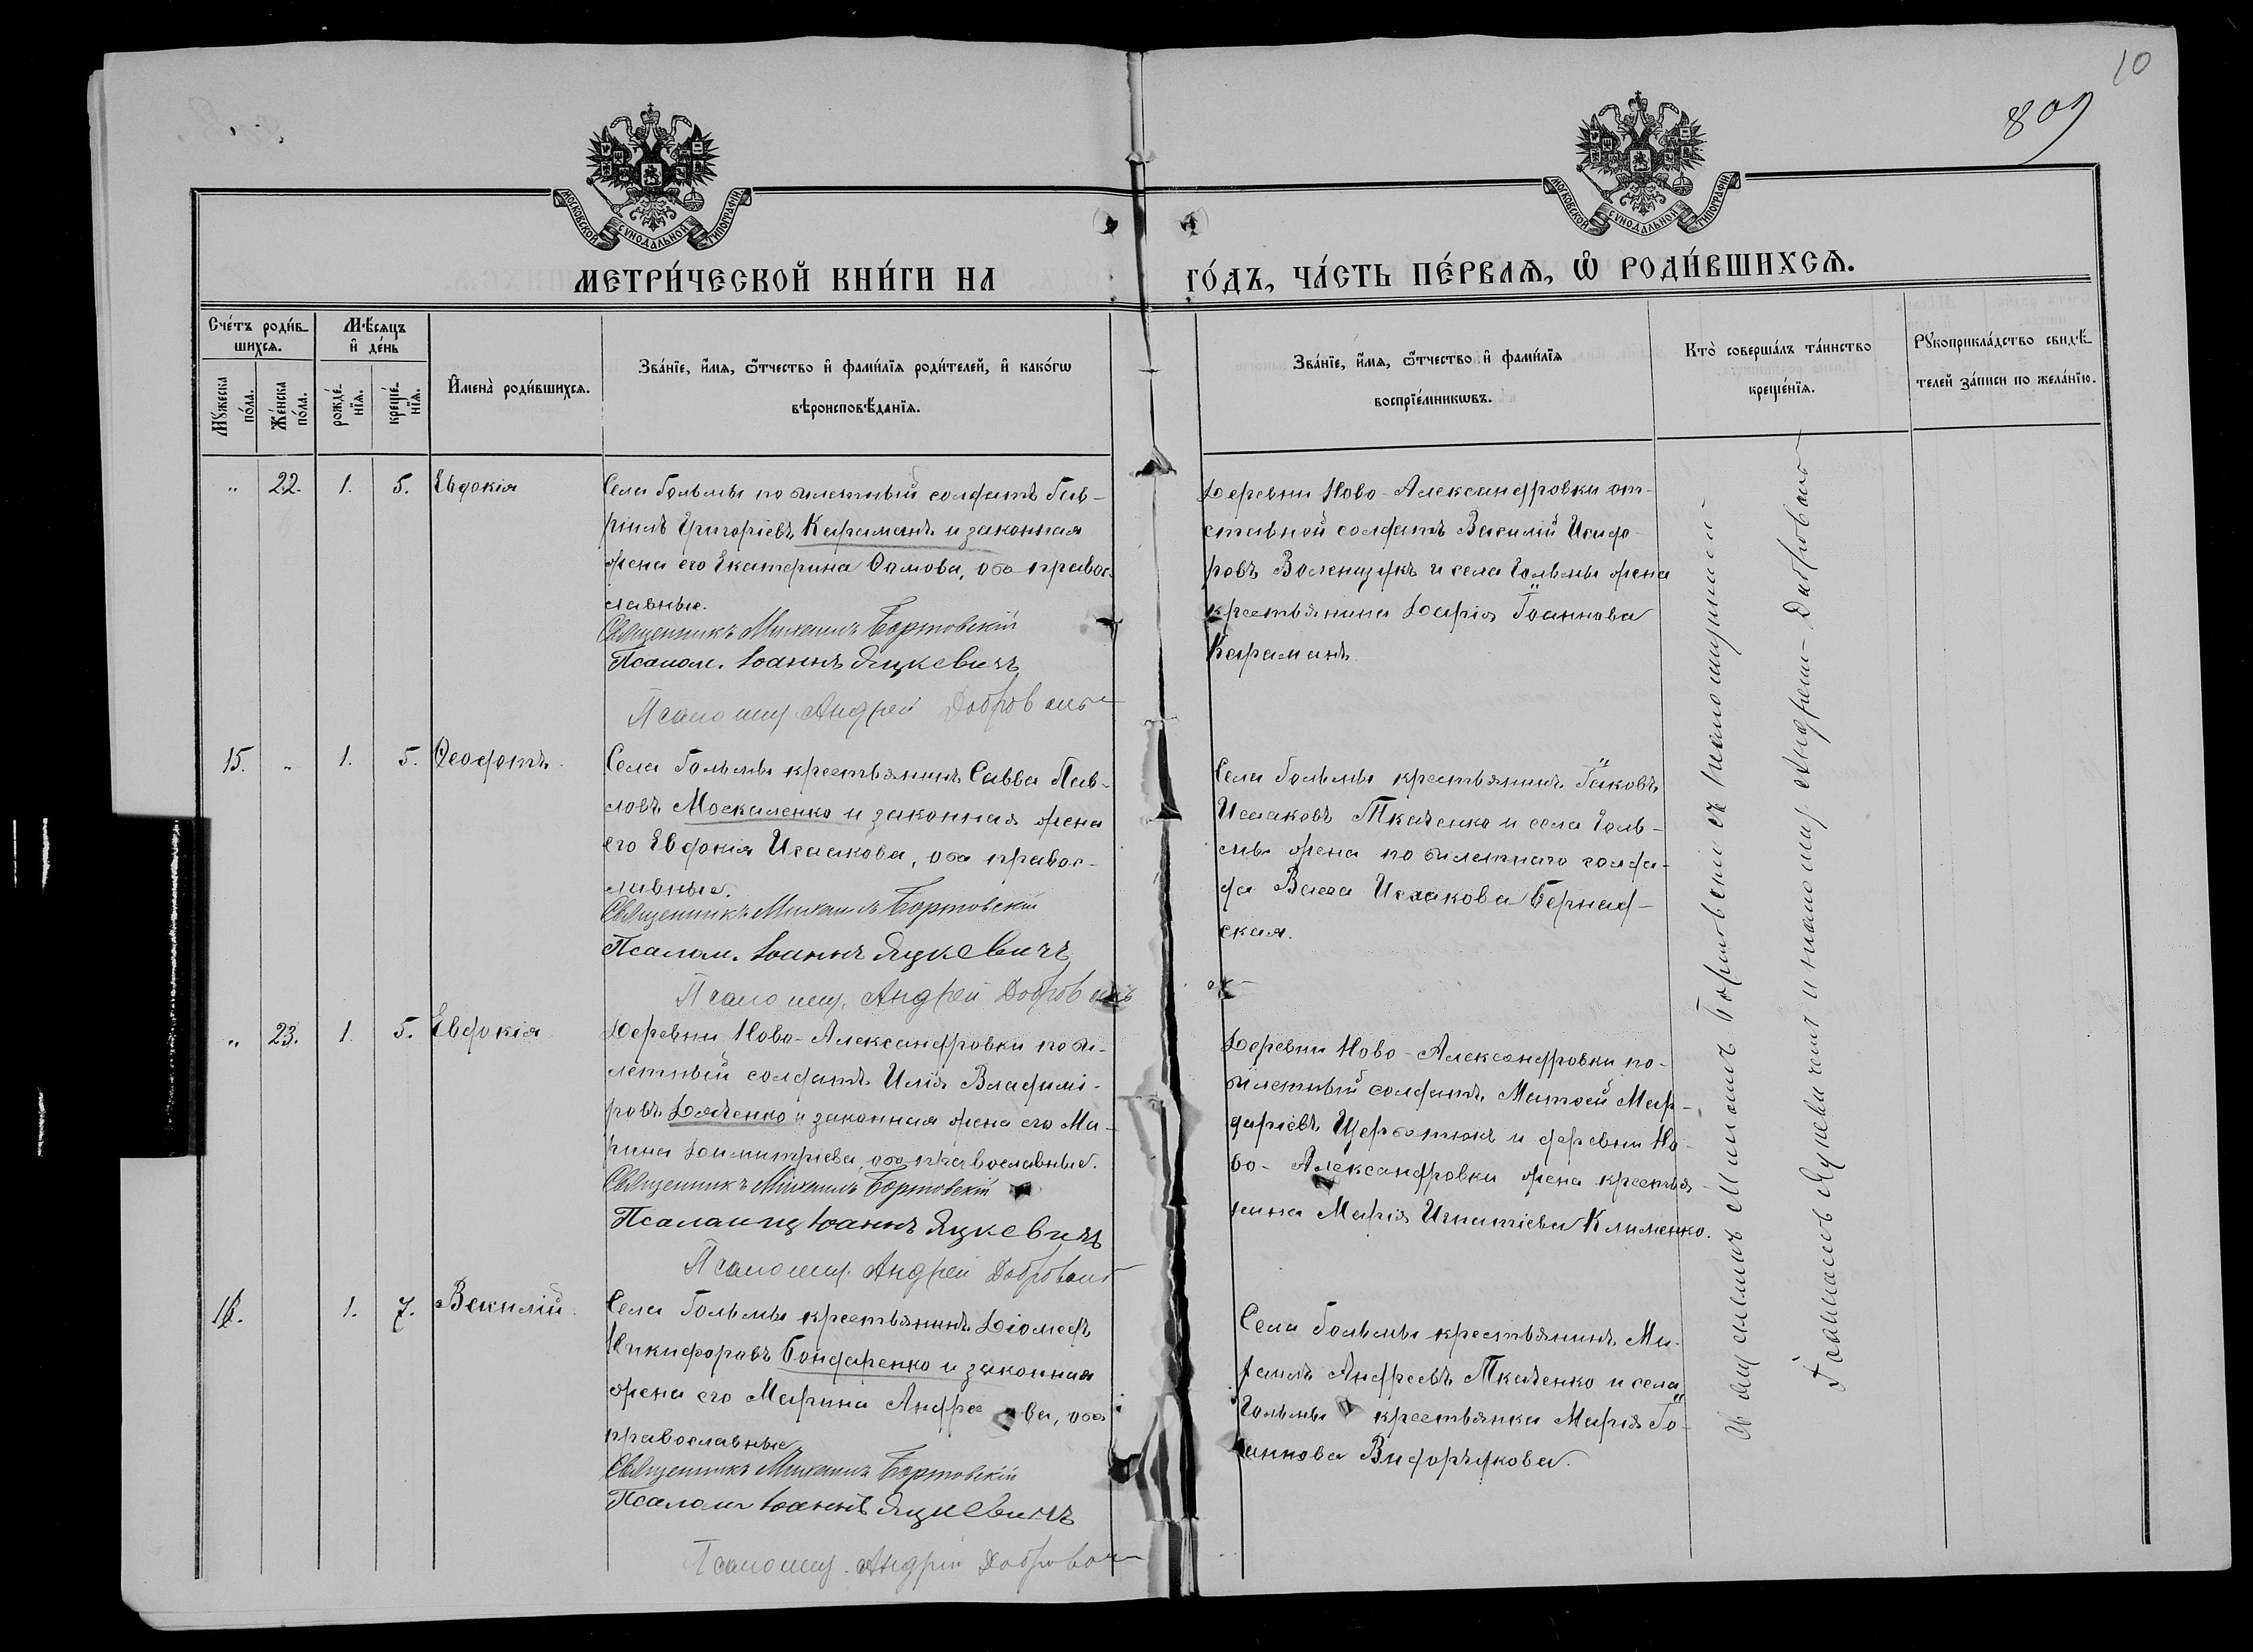 10
809
МОСКОВСКОЙ СѴНОДАЛЬНОЙ ТИПОГРАФІИ
МОСКОВСКОЙ СѴНОДАЛЬНОЙ ТИПОГРАФІИ
МЕТРИ́ЧЕСКОЙ КНИ́ГИ НА
ГО́ДЪ, ЧА́СТЬ ПЕ́РВАѦ, Ѽ РОДИ́ВШИХСѦ.
Сче́тъ роди́в-
шихсѧ.
Мꙋ́жеска
по́ла.
Же́нска
по́ла.
Мѣ́сѧцъ
и҆ де́нь
рожде́-
нїѧ.
креще́-
нїѧ.
И҆мена̀ роди́вшихсѧ.
Зва́нїе, и҆́мѧ, ѻ҆́тчество и҆ фами́лїѧ роди́телей, и҆ како́гѡ
вѣроисповѣ́данїѧ.
Зва́нїе, и҆́мѧ, ѻ҆́тчество и҆ фами́лїѧ
воспрїе́мникѡвъ.
Кто̀ соверша́лъ та́инство
креще́нїѧ.
Рꙋкоприкла́дство свидѣ́-
телей за́писи по жела́нїю.
" 22. 1. 5. Евдокія
Села Гольмы по билетный солдатъ Гав-
ріилъ Григоріевъ Караманъ и законная
жена его Екатерина Ѳомова, оба правос-
лавные.
Священникъ Михаилъ Бортовскій
Псалом. Іоаннъ Яцкевичъ
Псаломщ Андрей
Деревни Ново-Александровки от-
ставной солдатъ Василій Исидо-
ровъ Воленщукъ и села Гольмы жена
крестьянина Дарія Іоаннова
Караманъ
15. " 1. 5. Ѳеодотъ.
Села Гольмы крестьянинъ Савва Пав-
ловъ Москаленко и законная жена
его Евдокія Исаакова, оба правос-
лавные.
Священникъ Михаилъ Бортовскій
Псалом. Іоаннъ Яцкевичъ
Псаломщ. Андрей
Села Гольмы крестьянинъ Іаковъ
Исааковъ Ткаченко и села Голь-
мы жена по билетнаго солда-
Васса Исаакова Бернад-
ская.
" 23. 1. 5. Евдокія
Деревни Ново-Александровки по би-
летный солдатъ Илія Владимі-
ровъ Дяченко и законная жена его Ма-
рина Димитріева, оба православные.
Священникъ Михаилъ Бортовскій
Псаломщ Іоаннъ Яцкевичъ
Псаломщ. Андрей
Деревни Ново-Александровки по-
билетный солдатъ Матѳей Мар-
даріевъ Щербатюкъ и деревни Но-
во-Александровки жена крестья
нина Марія Игнатіева Клименко.
16. 1. 7. Василій.
Села Гольмы крестьянинъ Діомедъ
Никифоровъ Бондаренко и законная
жена его Марина Андреева, оба
православные
Священникъ Михаилъ Бортовскій
Псалом Іоаннъ Яцкевичъ
Псаломщ. Андрей
Села Гольмы крестьянинъ Ми-
хаилъ Андреевъ Ткаченко и села
Гольмы крестьянка Марія Іо-
аннова
Священникъ Михаилъ Бортовскій съ псаломщиками
Іоанномъ Яцкевичемъ и псаломщ. Андреемъ